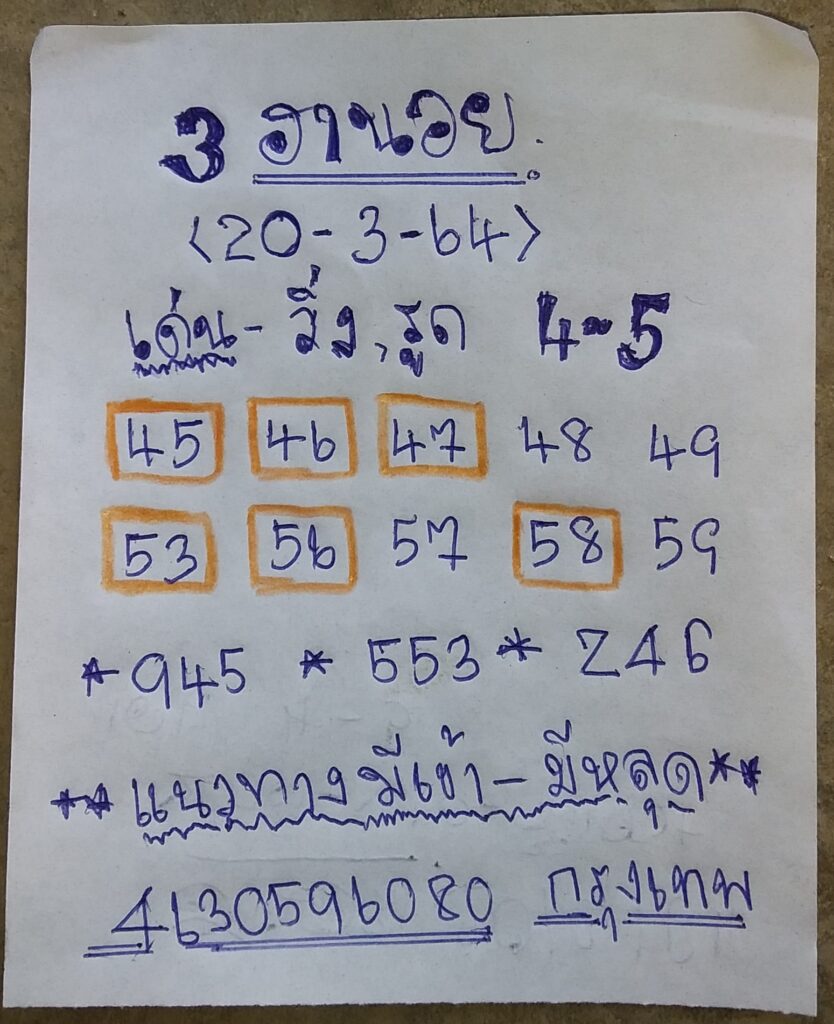 3 ฮานอย.
<20-3-64>
เด่น - วิ่ง, รูด 4-5
45 46 47 48 49
53 56 57 58 59
*945 * 553 * 246
** แนวทางมีเข้า - มีหลุด **
4630596080 กรุงเทพ